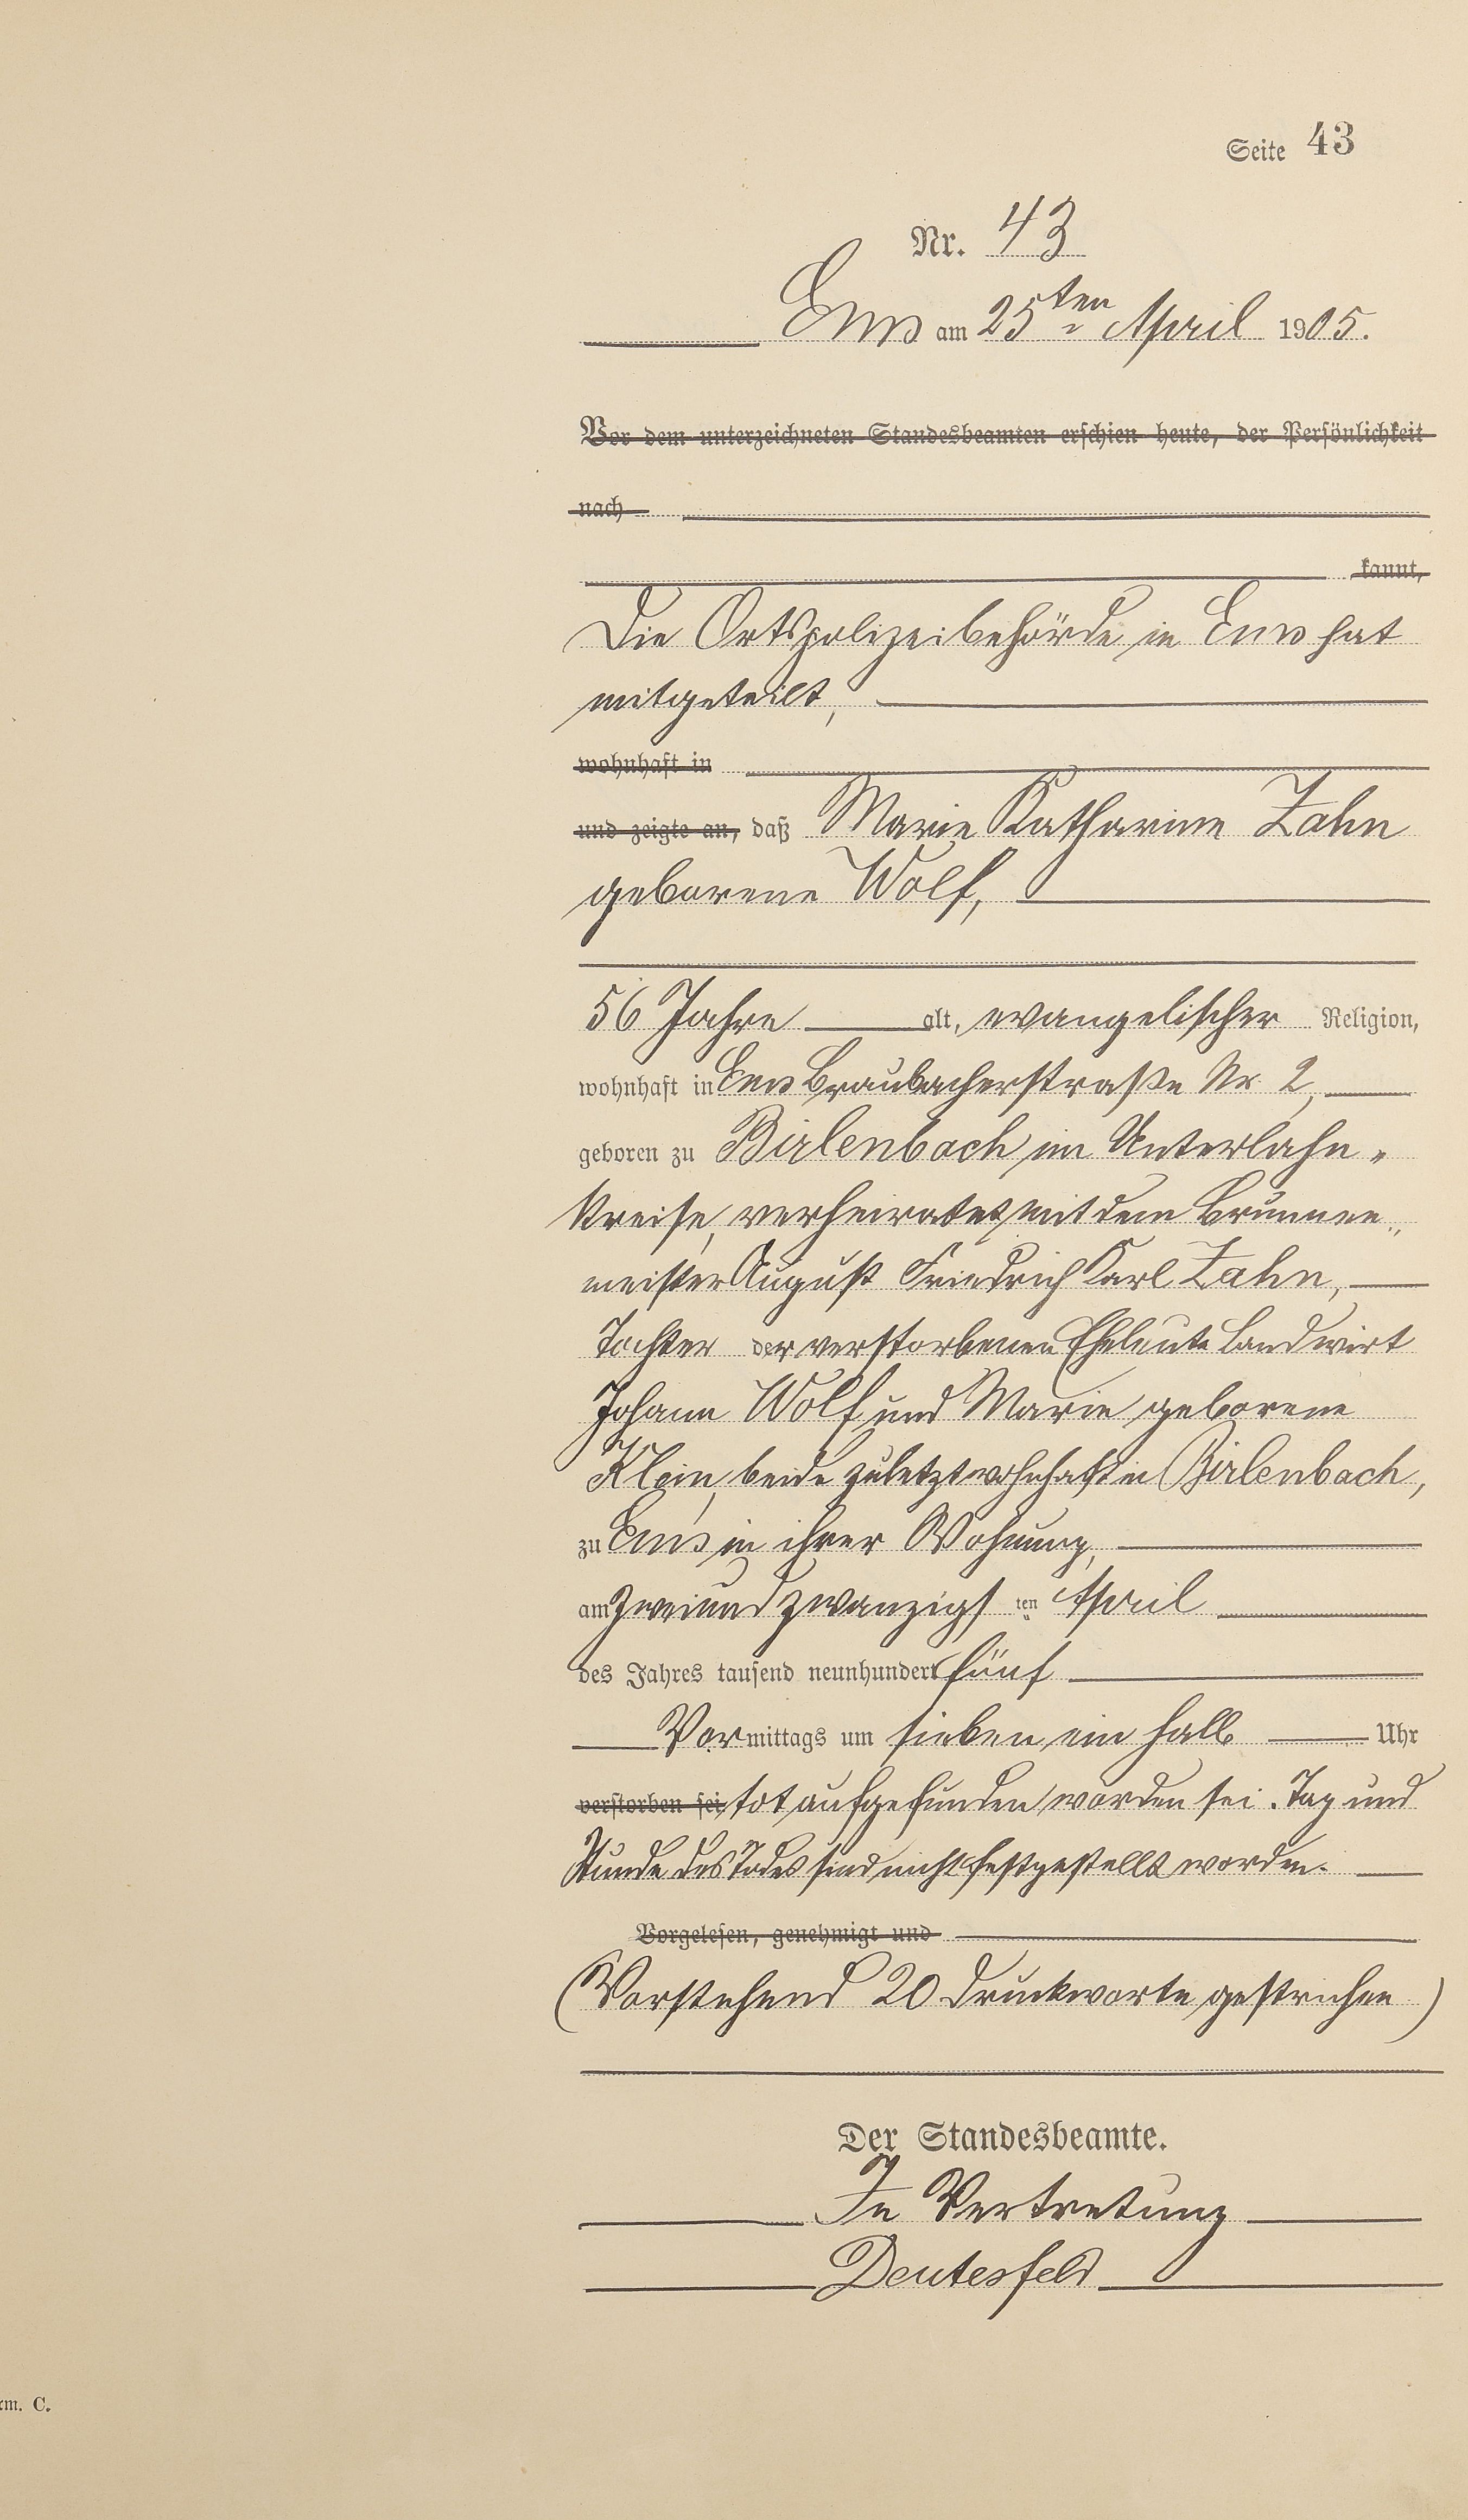 Seite 43
Nr. 43
Ems am 25ten April 1905.
Vor dem unterzeichneten Standesbeamten erschien heute, der Persönlichkeit
nach
kannt,
Die Ortspolizeibehörde in Ems hat
mitgeteilt,
wohnhaft in
und zeigte an, daß Marie Katharine Zahn
geborene Wolf,
56 Jahre alt, evangelischer Religion,
wohnhaft in Ems Braubacherstraße Nr. 2,
geboren zu Birlenbach im Unterlahn„
kreise, verheiratet mit dem Brunnen„
meister August Friedrich Karl Zahn,
Tochter der verstorbenen Eheleute Landwirt
Johann Wolf und Marie geborene
Klein, beide zuletzt wohnhaft in Birlenbach,
zu Ems in ihrer Wohnung,
am zweiundzwanzigsten April
des Jahres tausend neunhundert fünf
Vormittags um sieben ein halb Uhr
verstorben sei, tot aufgefunden worden sei. Tag und
Stunde des Todes sind nicht festgestellt worden.
Vorgelesen, genehmigt und
(Vorstehend 20 Druckworte gestrichen)
Der Standesbeamte.
In Vertretung
Deutesfeld
rm. C.